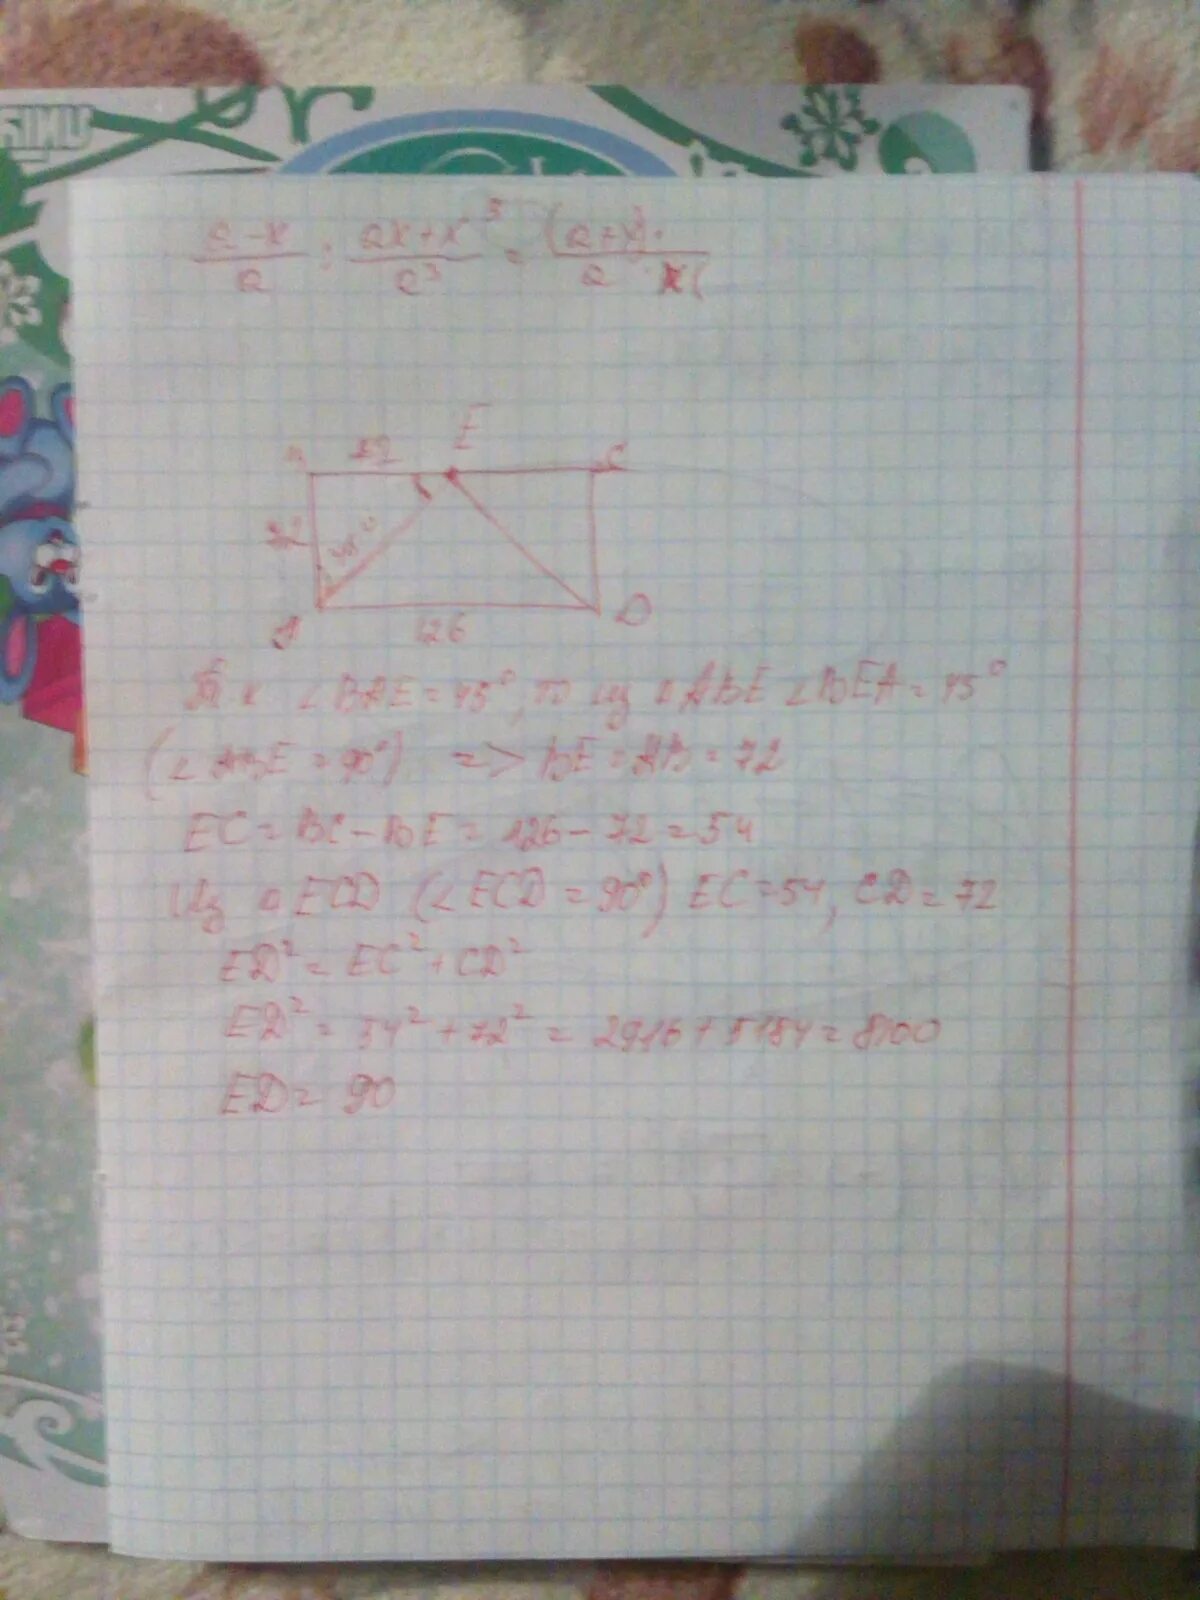 a-x/a : ax+x³/a³ = (a+x)·/a · x(
E
72 C
72 45°
A 126 D
Т к ∠BAE = 45°, то из △ABE ∠BEA = 45°
(∠ABE = 90°) => BE = AB = 72
EC = BC - BE = 126 - 72 = 54
Из △ ECD (∠ECD = 90°) EC = 54, CD = 72
ED² = EC² + CD²
ED² = 54² + 72² = 2916 + 5184 = 8100
ED = 90